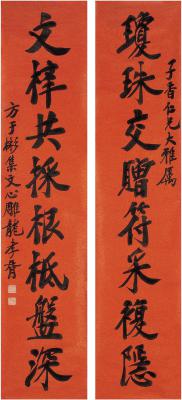 子香仁兄大雅属
瓊珠交贈符采複隱
文梓共採根柢盤深
方于彬集文心雕龍